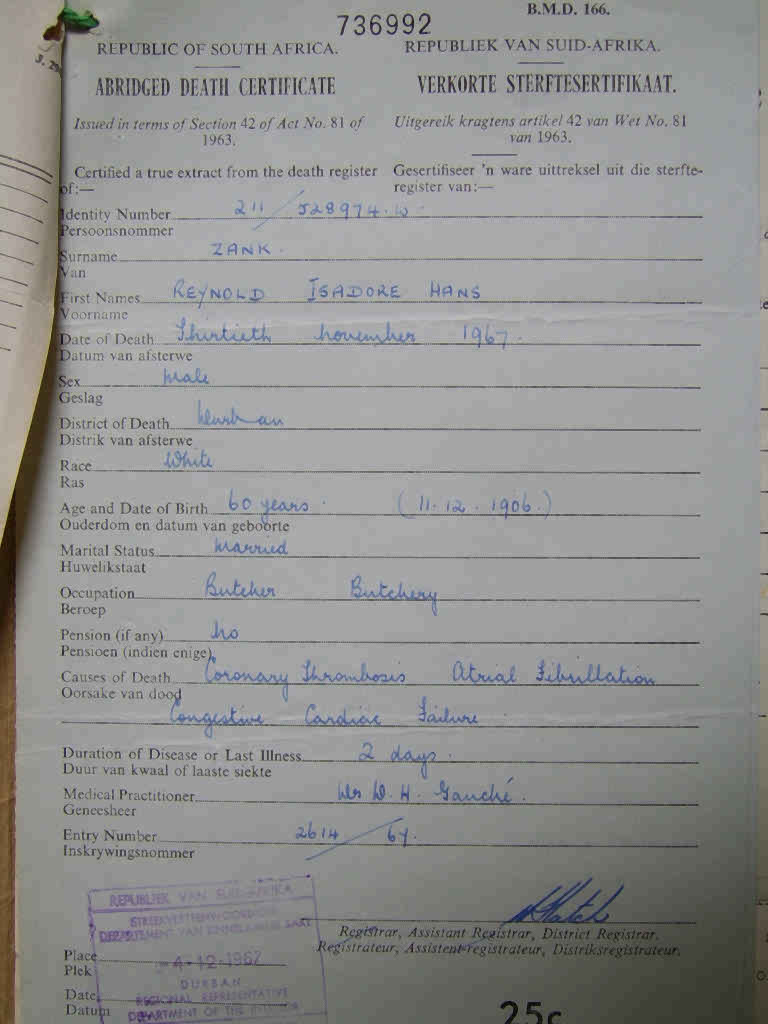 B.M.D. 166.
736992
REPUBLIC OF SOUTH AFRICA.
ABRIDGED DEATH CERTIFICATE
Issued in terms of Section 42 of Act No. 81 of
1963.
Certified a true extract from the death register
of:—
REPUBLIEK VAN SUID-AFRIKA.
VERKORTE STERFTESERTIFIKAAT.
Uitgereik kragtens artikel 42 van Wet No. 81
van 1963.
Gesertifiseer 'n ware uittreksel uit die sterfte-
register van:—
Identity Number 211 / 528974 W
Persoonsnommer
Surname ZANK.
Van
First Names REYNOLD ISADORE HANS
Voorname
Date of Death Thirtieth November 1967.
Datum van afsterwe
Sex Male
Geslag
District of Death Durban
Distrik van afsterwe
Race White
Ras
Age and Date of Birth 60 years. (11.12.1906.)
Ouderdom en datum van geboorte
Marital Status Married
Huwelikstaat
Occupation Butcher Butchery
Beroep
Pension (if any) No
Pensioen (indien enige)
Causes of Death Coronary Thrombosis Atrial Fibrillation
Oorsake van dood
Congestive Cardiac Failure
Duration of Disease or Last Illness 2 days.
Duur van kwaal of laaste siekte
Medical Practitioner Dr D. H. Gauché.
Geneesheer
Entry Number 2614 / 67.
Inskrywingsnommer
Registrar, Assistant Registrar, District Registrar.
Registrateur, Assistent-registrateur, Distriksregistrateur.
REPUBLIEK VAN SUID-AFRIKA
STREEKVERTEENWOORDIGER
DEPARTEMENT VAN BINNELANDSE SAKE
Place
Plek
4-12-1967
DURBAN
Date
Datum
REGIONAL REPRESENTATIVE
DEPARTMENT OF THE INTERIOR
25c